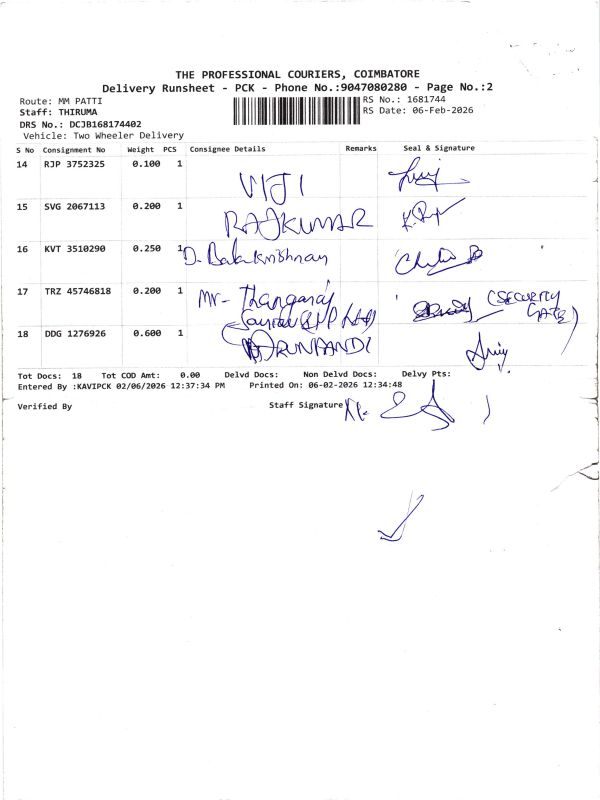 THE PROFESSIONAL COURIERS, COIMBATORE
Delivery Runsheet - PCK - Phone No.:9047080280 - Page No.:2
Route: MM PATTI
Staff: THIRUMA
DRS No.: DCJB168174402
Vehicle: Two Wheeler Delivery
RS No.: 1681744
RS Date: 06-Feb-2026
S No Consignment No Weight PCS Consignee Details Remarks Seal & Signature
14 RJP 3752325 0.100 1 VIJI
15 SVG 2067113 0.200 1 RAJKUMAR
16 KVT 3510290 0.250 1 D. Balakrishnan
17 TRZ 45746818 0.200 1 Mr- Thangaraj (SECURITY GATE)
18 DDG 1276926 0.600 1 ARUNPANDI
Tot Docs: 18 Tot COD Amt: 0.00 Delvd Docs: Non Delvd Docs: Delvy Pts:
Entered By :KAVIPCK 02/06/2026 12:37:34 PM Printed On: 06-02-2026 12:34:48
Verified By Staff Signature